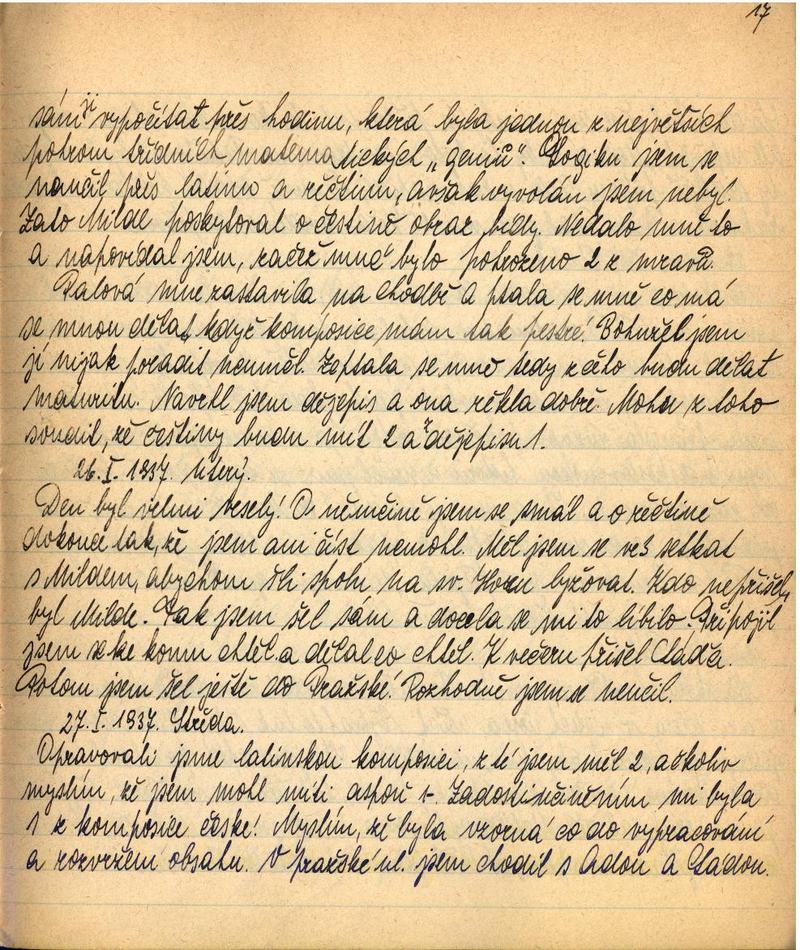 17
sám ji vypočítat přes hodinu, která byla jednou z největších
pohrom třídních matematických „geniů". Logiku jsem se
naučil přes latinu a řečtinu, avšak vyvolán jsem nebyl.
Zato Milde poskytoval o češtině obraz bídy. Nedalo mně to
a napovídal jsem, začež mně bylo pohroženo 2 z mravů.
Palová mne zastavila na chodbě a ptala se mně co má
se mnou dělat, když komposice mám tak pestré! Bohužel jsem
jí nijak poradit neuměl. Zeptala se mně tedy z čeho budu dělat
maturitu. Navrhl jsem dějepis a ona řekla dobře. Mohu z toho
soudit, že češtiny budu mít 2 a z dějepisu 1.
26.I.1937. Úterý.
Den byl velmi veselý! O němčině jsem se smál a o řečtině
dokonce tak, že jsem ani číst nemohl. Měl jsem se ve 3 setkat
s Mildem, abychom šli spolu na sv. Horu lyžovat. Kdo nepřišel,
byl Milde. Tak jsem šel sám a docela se mi to líbilo. Připojil
jsem se ke komu chtěl a dělal co chtěl. K večeru přišel Láďa.
Potom jsem šel ještě do Pražské! Rozhodně jsem se neučil.
27.I.1937. Středa.
Opravovali jsme latinskou komposici, z té jsem měl 2, ačkoliv
myslím, že jsem mohl míti aspoň 1-. Zadostiučiněním mi byla
1 z komposice české! Myslím, že byla vzorná co do vypracování
a rozvržení obsahu. V pražské ul. jsem chodil s Adou a Láďou.